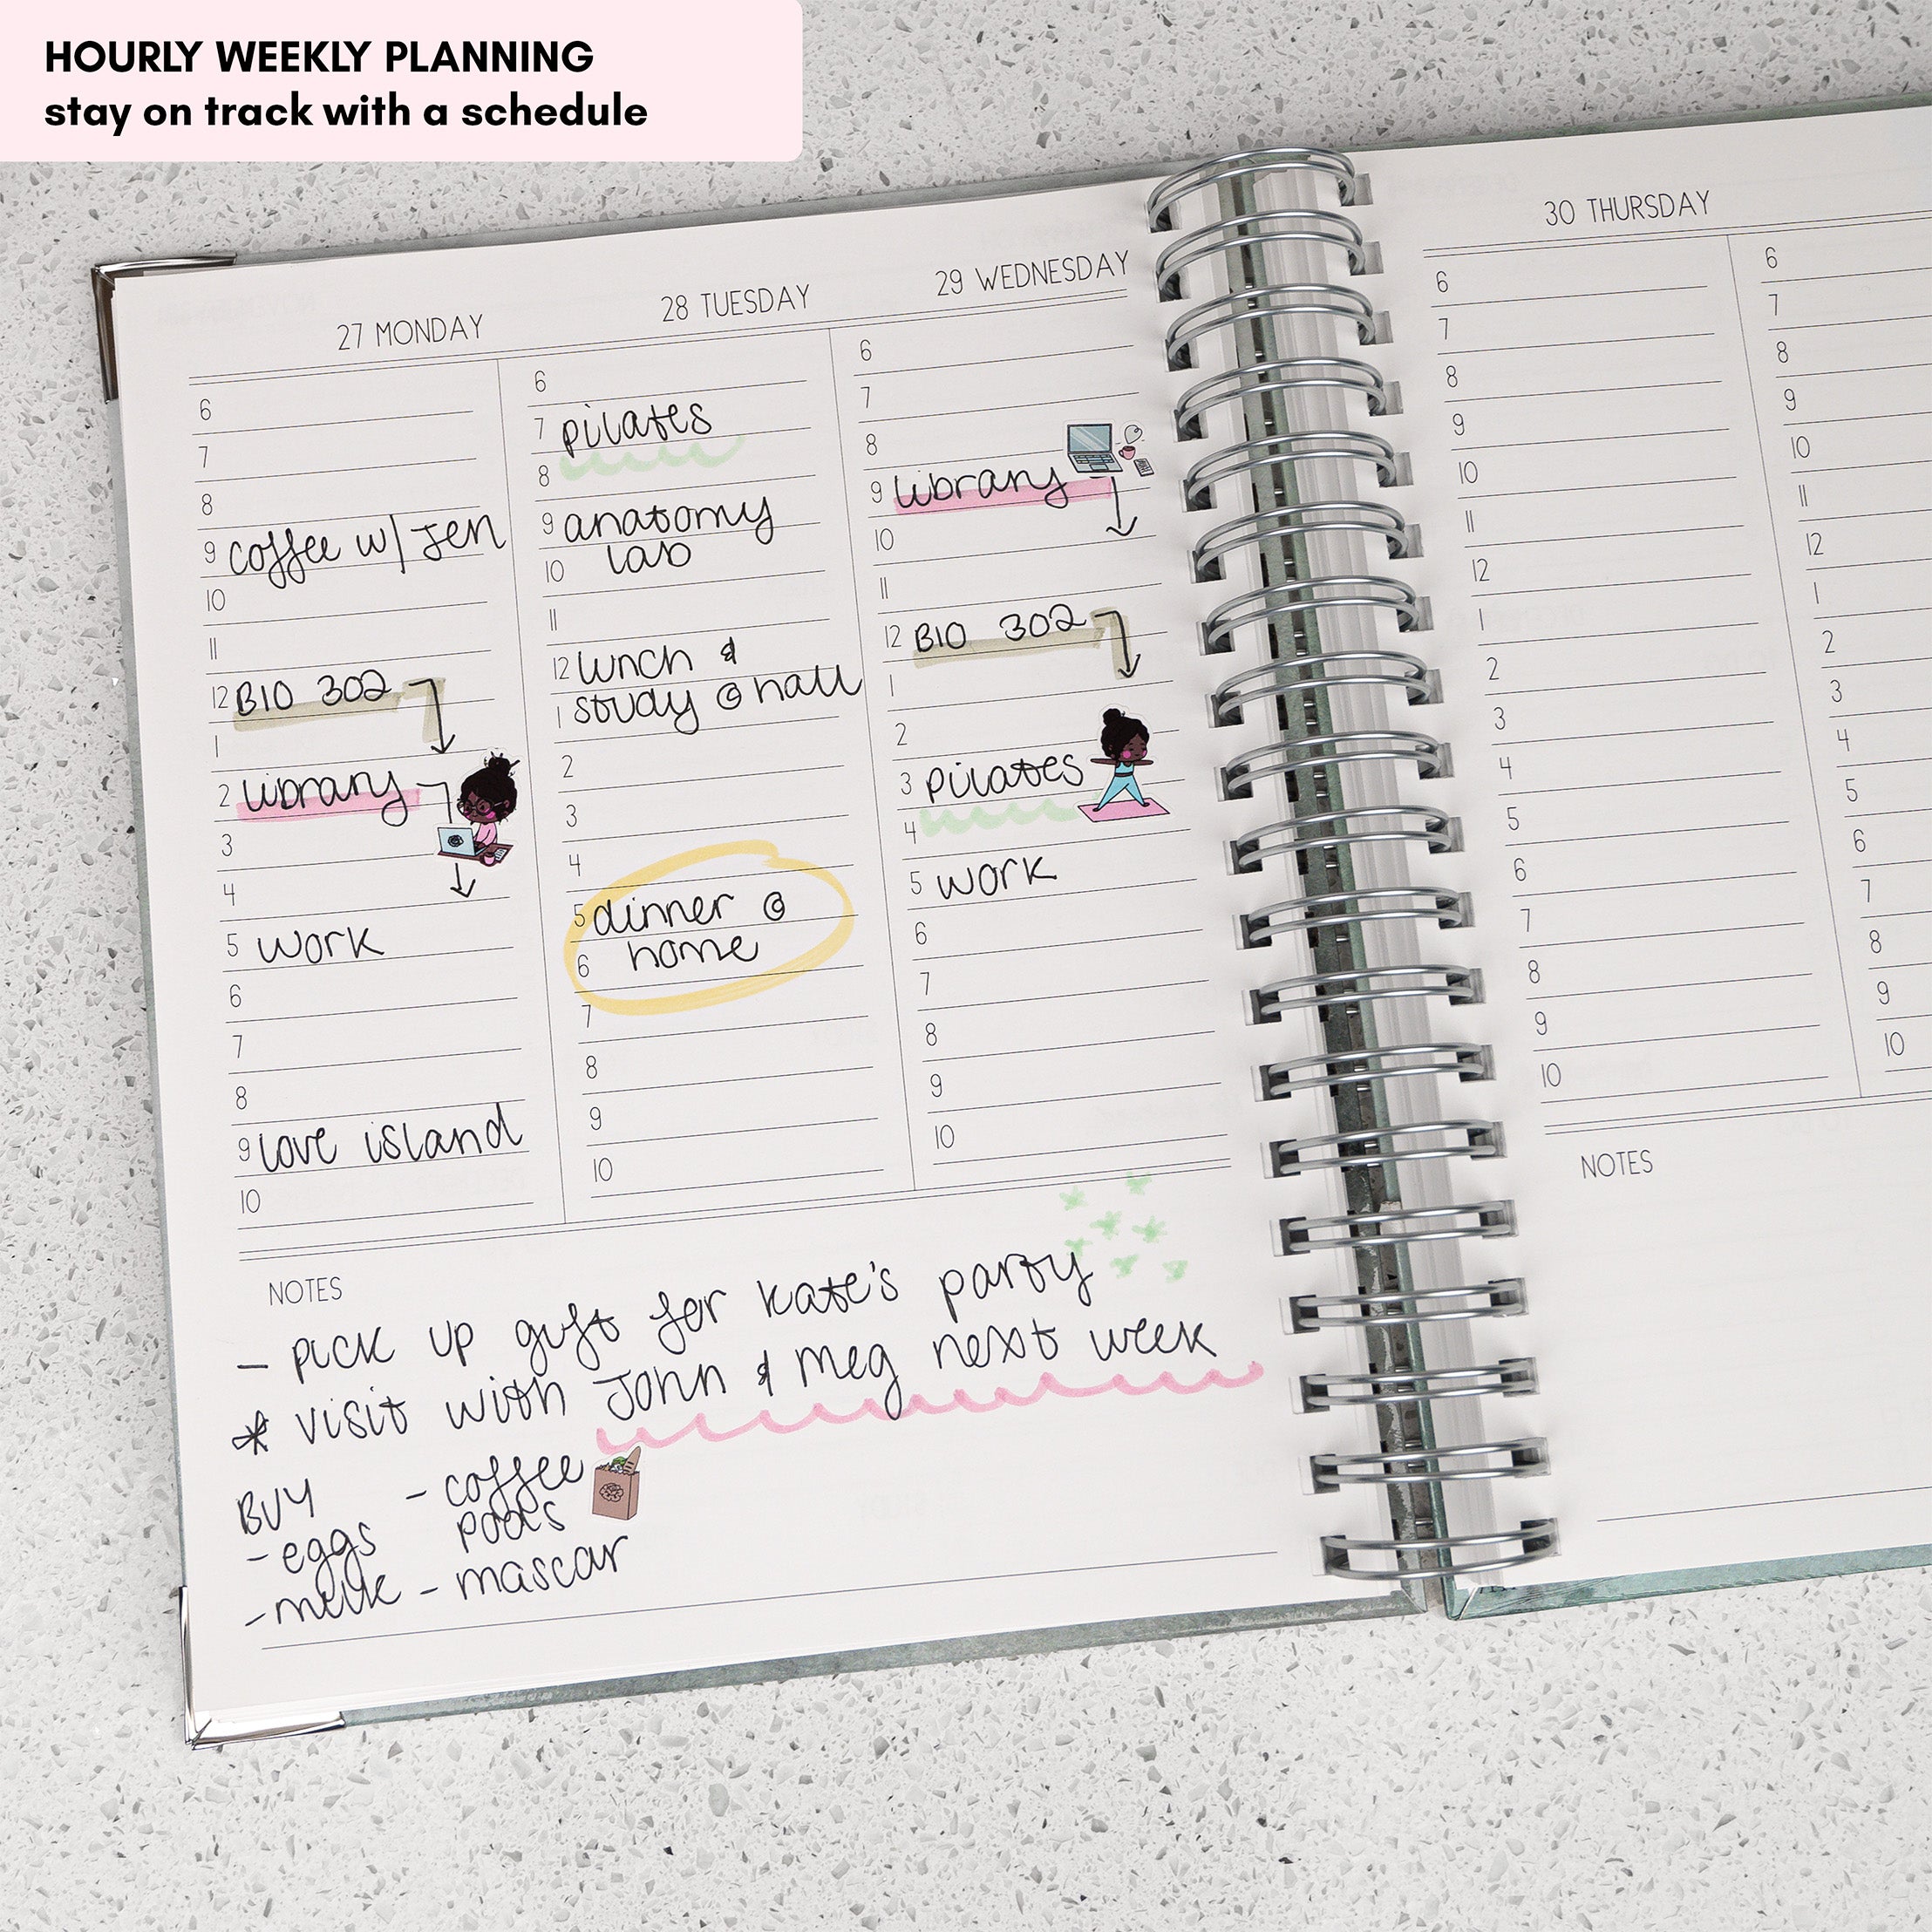 HOURLY WEEKLY PLANNING
stay on track with a schedule
27 MONDAY
6
7
8
9 coffee w/ Jen
10
11
12 BIO 302
1
2 library
3
4
5 work
6
7
8
9 love island
10
28 TUESDAY
6
7 pilates
8
9 anatomy
lab
10
11
12 lunch &
1 study @ hall
2
3
4
5 dinner @
6 home
7
8
9
10
29 WEDNESDAY
6
7
8
9 library
10
11
12 BIO 302
1
2
3 pilates
4
5 work
6
7
8
9
10
NOTES
- pick up gift for kate's party
* visit with John & meg next week
BUY
- eggs
- milk
- coffee
pods
- mascar
30 THURSDAY
6
7
8
9
10
11
12
1
2
3
4
5
6
7
8
9
10
NOTES
6
7
8
9
10
11
12
1
2
3
4
5
6
7
8
9
10